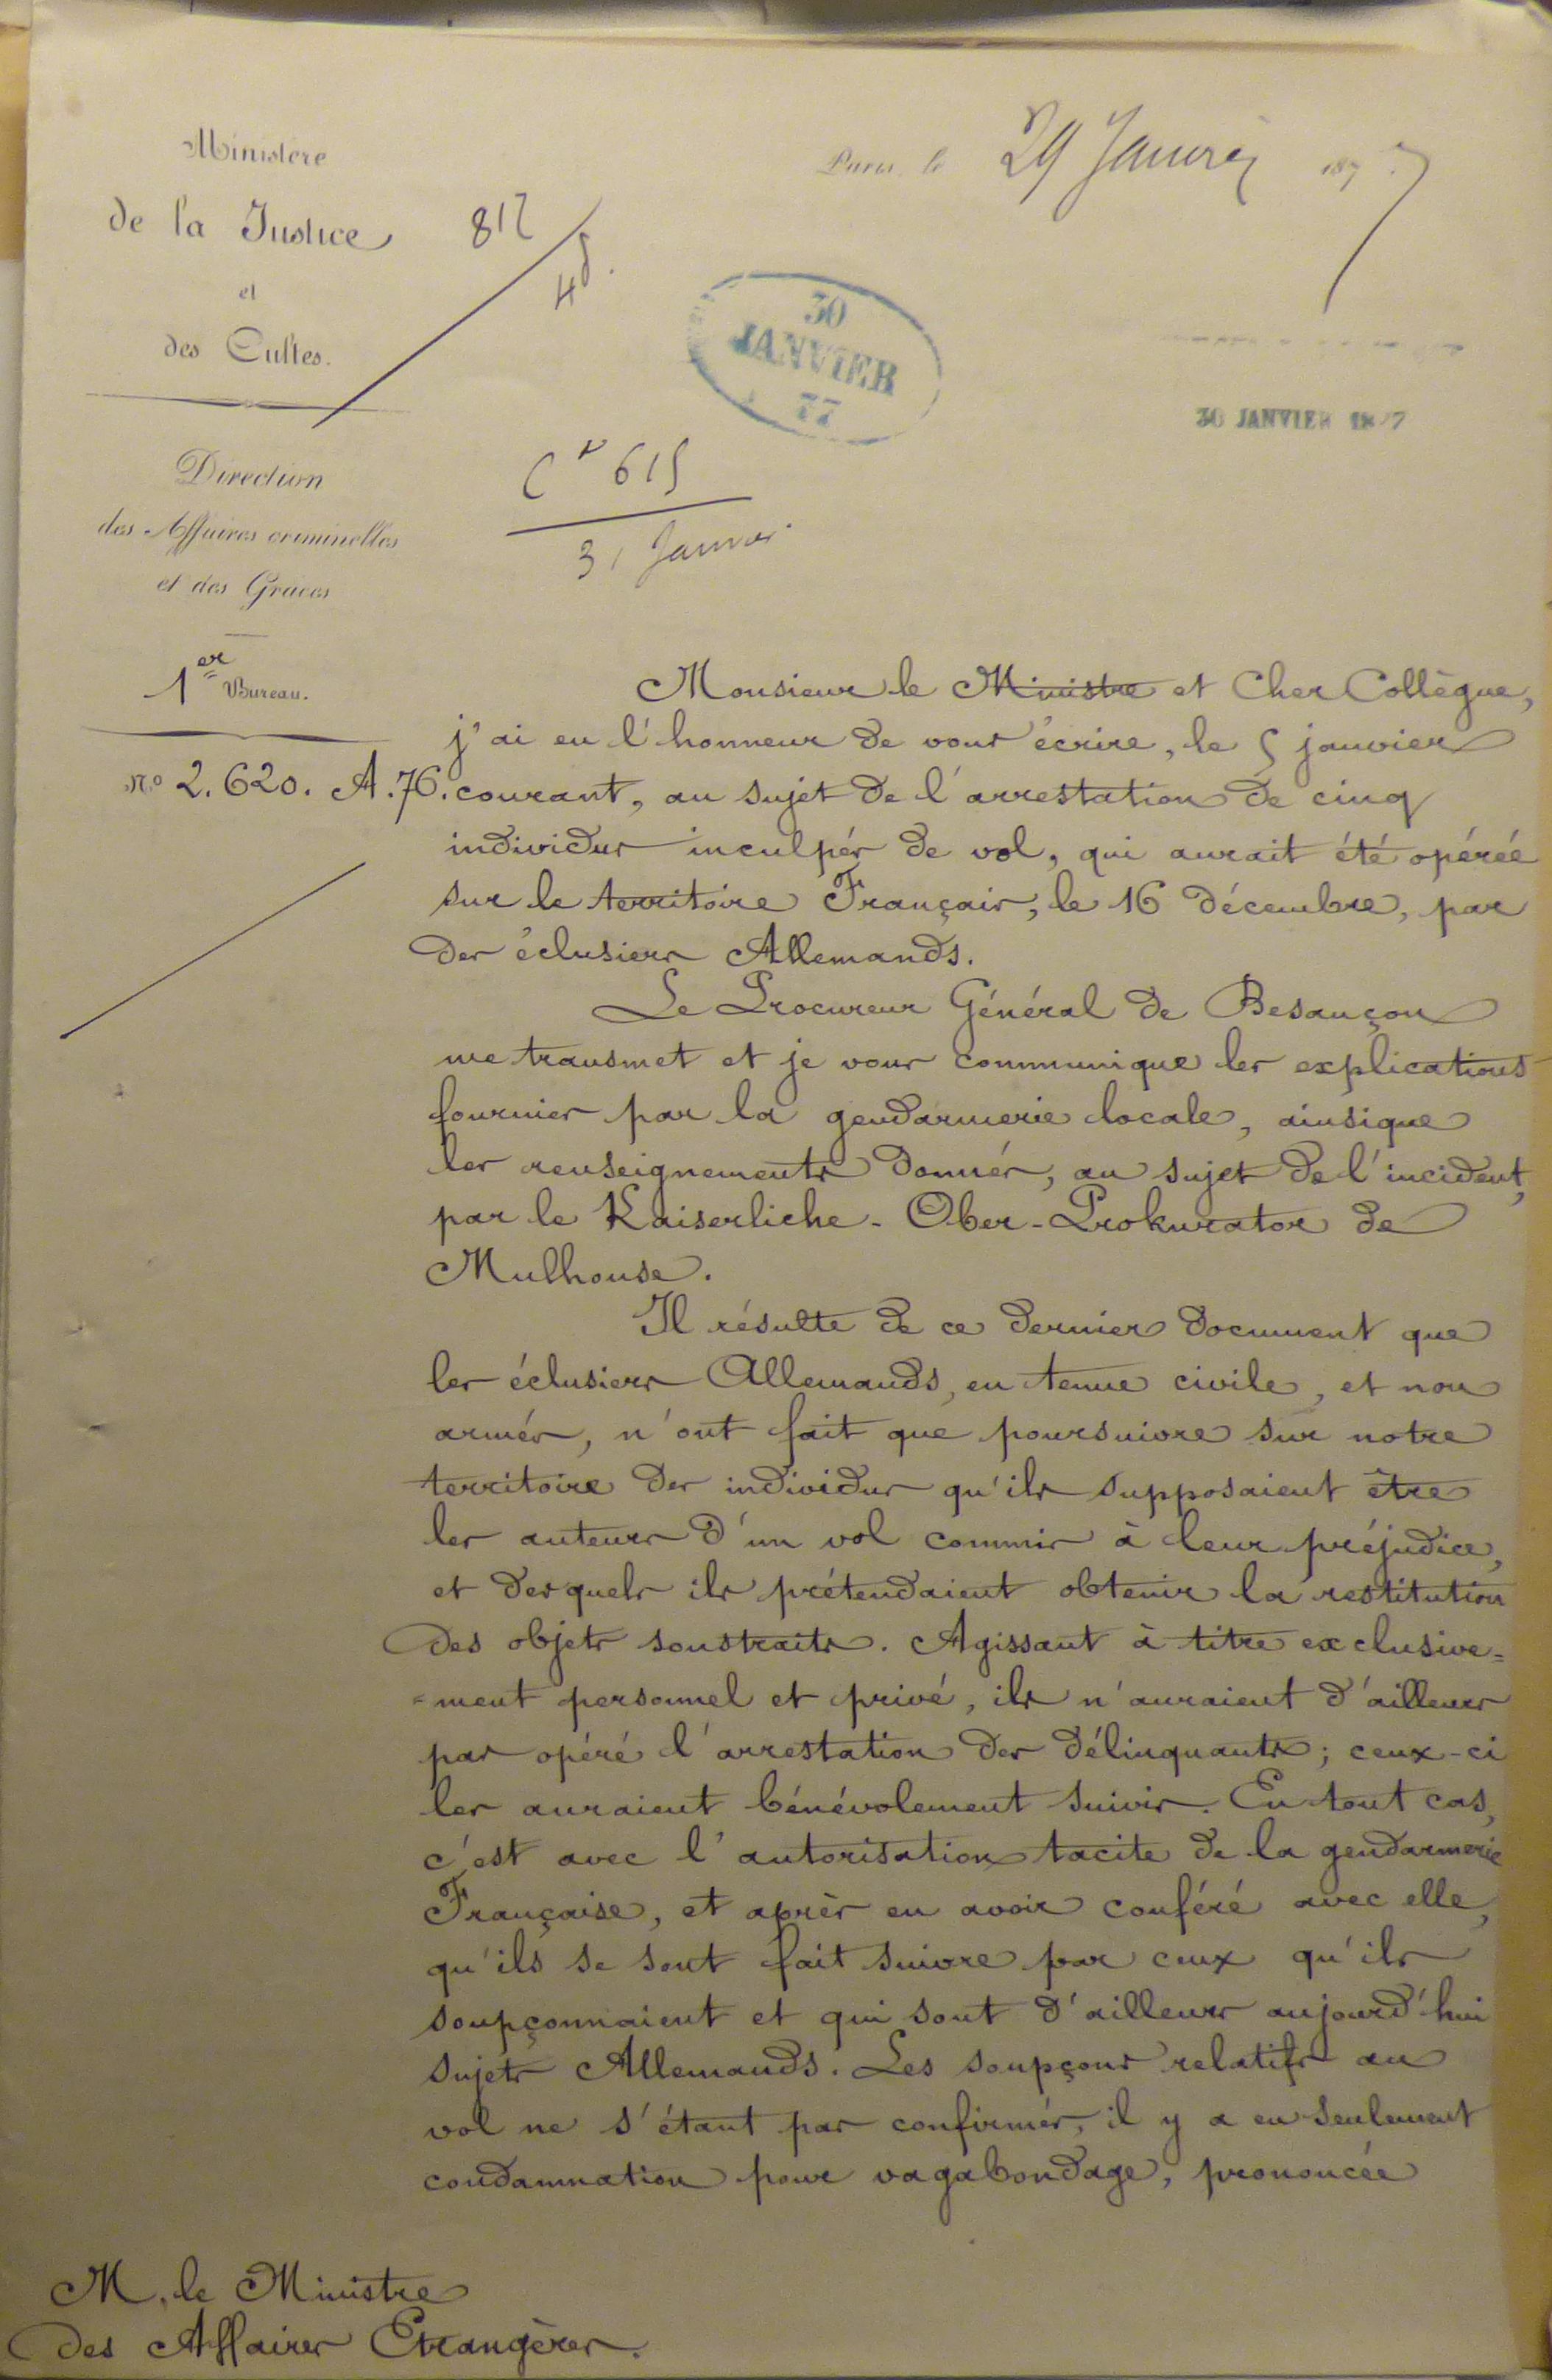 Ministère
de la Justice
et
des Cultes.
Direction
des Affaires criminelles
et des Graces
1er Bureau.
No 2.620. A.76.
Paris, le 29 Janvier 1877
817
30
JANVIER
77
30 JANVIER 1877
615
31 Janvier
Monsieur le Ministre et Cher Collègue,
j'ai eu l'honneur de vous écrire, le 5 janvier
courant, au sujet de l'arrestation de cinq
individus inculpés de vol, qui aurait été opérée
sur le territoire Français, le 16 décembre, par
des éclusiers Allemands.
Le Procureur Général de Besançon
me transmet et je vous communique les explications
fournies par la gendarmerie locale, ainsique
les renseignements donnés, au sujet de l'incident,
par le Kaiserliche-Ober-Prokurator de
Mulhouse.
Il résulte de ce dernier document que
les éclusiers Allemands, en tenue civile, et non
armés, n'ont fait que poursuivre sur notre
territoire des individus qu'ils supposaient être
les auteurs d'un vol commis à leur préjudice,
et desquels ils prétendaient obtenir la restitution
des objets soustraits. Agissant à titre exclusive=
=ment personnel et privé, ils n'auraient d'ailleurs
pas opéré l'arrestation des délinquants; ceux-ci
les auraient bénévolement suivis. En tout cas,
c'est avec l'autorisation tacite de la gendarmerie
Française, et après en avoir conféré avec elle,
qu'ils se sont fait suivre par ceux qu'ils
soupçonnaient et qui sont d'ailleurs aujourd'hui
sujets Allemands. Les soupçons relatifs au
vol ne s'étant pas confirmés, il y a eu seulement
condamnation pour vagabondage, prononcée
M. le Ministre
des Affaires Etrangères.